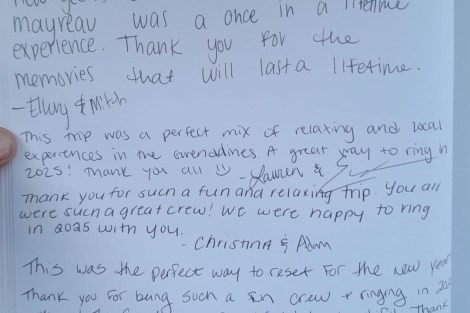 mayreau was a once in a lifetime
experience. Thank you for the
memories that will last a lifetime.
- Ellury & Mitch
This trip was a perfect mix of relaxing and local
experiences in the Grenadines. A great way to ring in
2025! Thank you all ☺ - Lauren &
Thank you for such a fun and relaxing trip. You all
were such a great crew! We were happy to ring
in 2025 with you.
- Christina &
This was the perfect way to reset for the new year
Thank you for being such a fun crew + ringing in
Thank